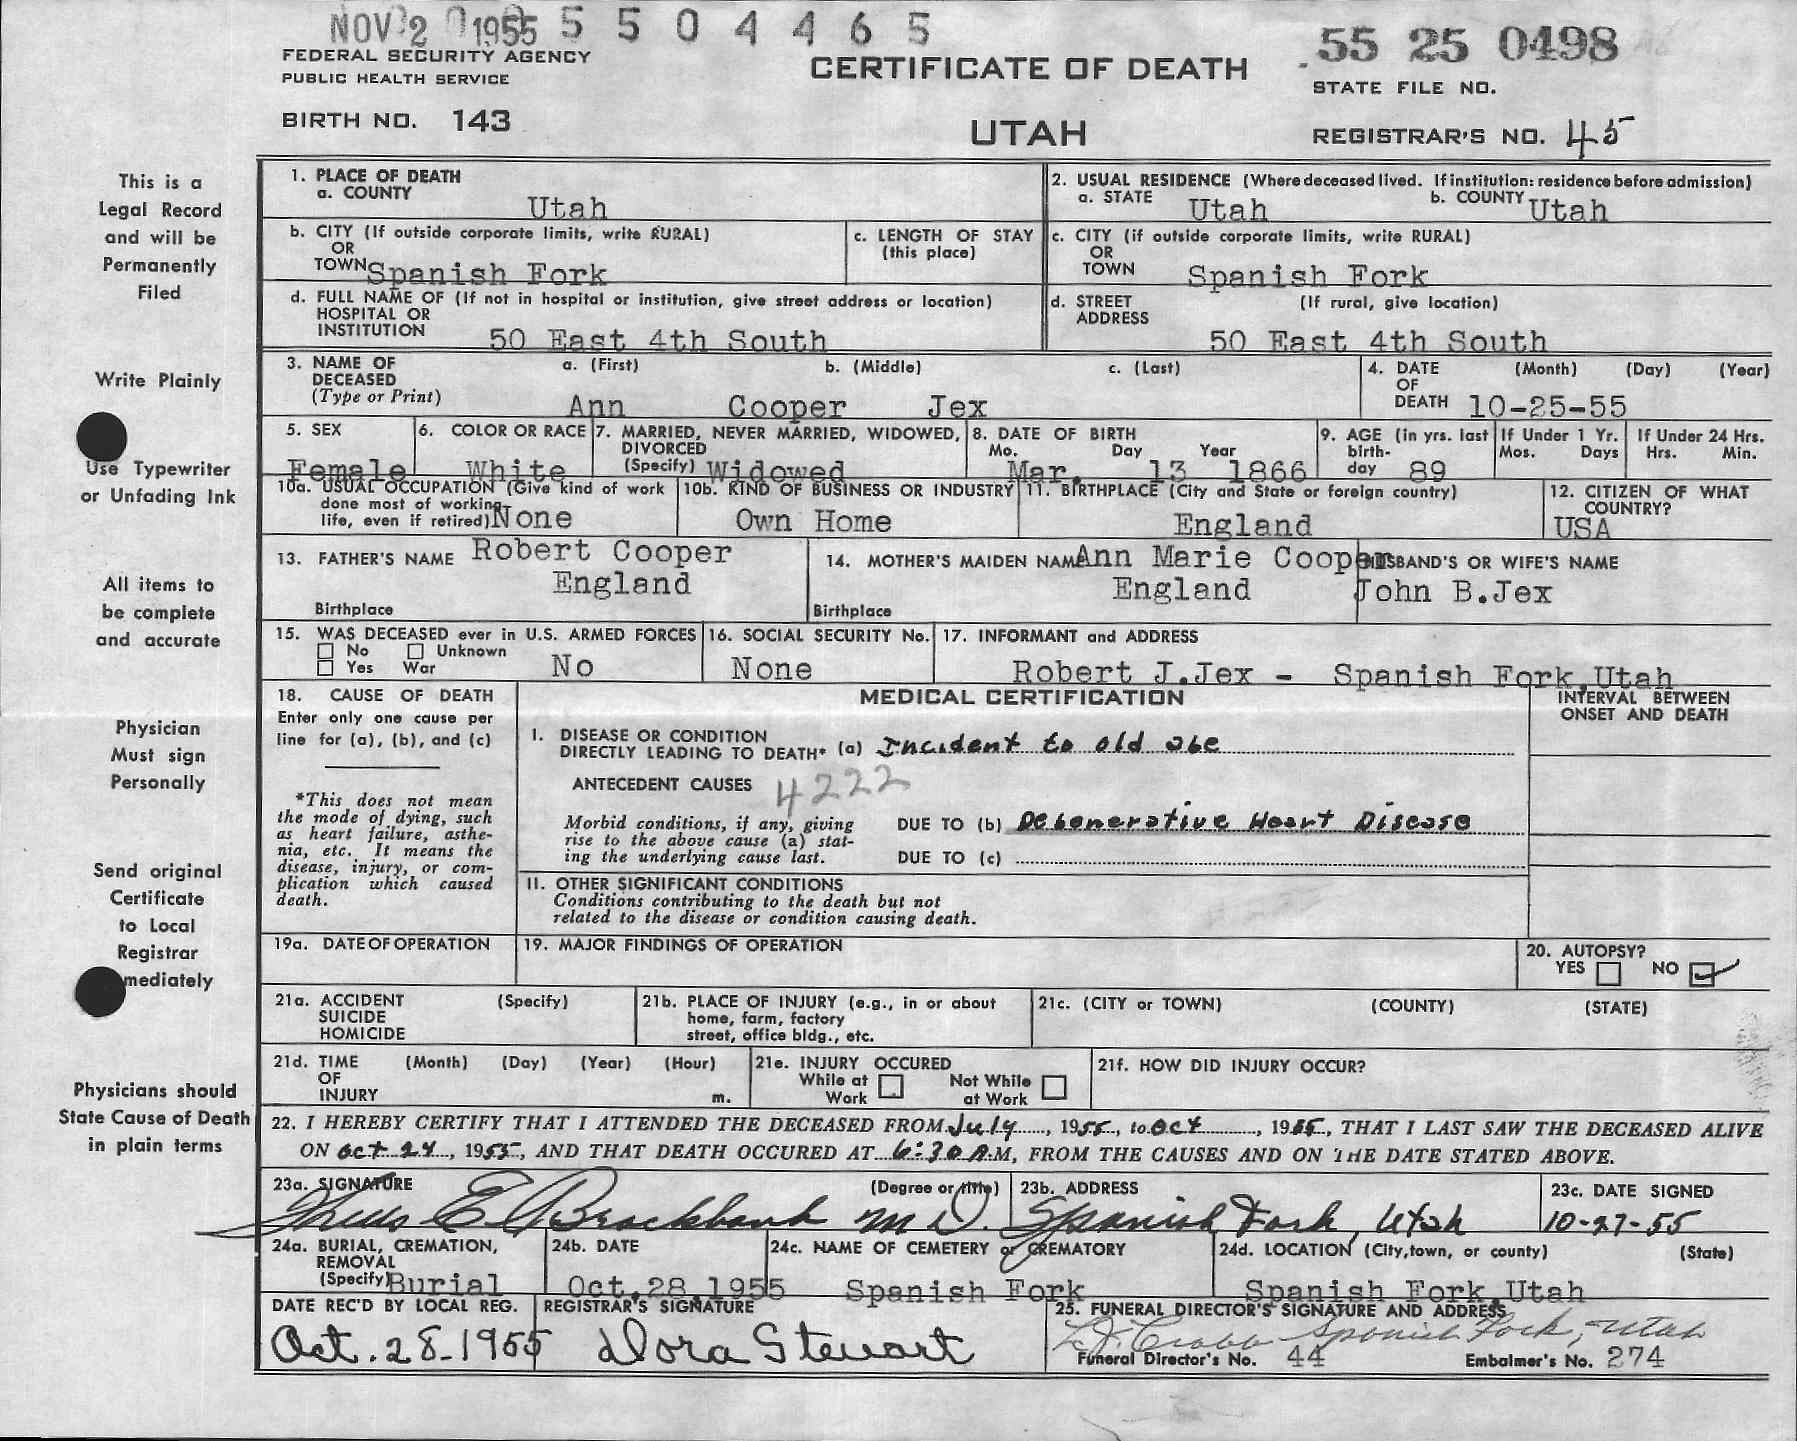 NOV 2 1955 5 5 0 4 4 6 5
55 25 0498
FEDERAL SECURITY AGENCY
PUBLIC HEALTH SERVICE
CERTIFICATE OF DEATH
STATE FILE NO.
BIRTH NO. 143
UTAH
REGISTRAR'S NO. 45
This is a
Legal Record
and will be
Permanently
Filed
Write Plainly
Use Typewriter
or Unfading Ink
All items to
be complete
and accurate
Physician
Must sign
Personally
Send original
Certificate
to Local
Registrar
mediately
Physicians should
State Cause of Death
in plain terms
1. PLACE OF DEATH
a. COUNTY
Utah
2. USUAL RESIDENCE (Where deceased lived. If institution: residence before admission)
a. STATE Utah b. COUNTY Utah
b. CITY (If outside corporate limits, write RURAL)
OR
TOWN Spanish Fork
c. LENGTH OF STAY
(this place)
c. CITY (if outside corporate limits, write RURAL)
OR
TOWN Spanish Fork
d. FULL NAME OF (If not in hospital or institution, give street address or location)
HOSPITAL OR
INSTITUTION 50 East 4th South
d. STREET (If rural, give location)
ADDRESS
50 East 4th South
3. NAME OF a. (First) b. (Middle) c. (Last)
DECEASED
(Type or Print) Ann Cooper Jex
4. DATE (Month) (Day) (Year)
OF
DEATH 10-25-55
5. SEX
Female
6. COLOR OR RACE
White
7. MARRIED, NEVER MARRIED, WIDOWED,
DIVORCED
(Specify) Widowed
8. DATE OF BIRTH
Mo. Day Year
Mar. 13 1866
9. AGE (in yrs. last
birth-
day 89
If Under 1 Yr.
Mos. Days
If Under 24 Hrs.
Hrs. Min.
10a. USUAL OCCUPATION (Give kind of work
done most of working
life, even if retired) None
10b. KIND OF BUSINESS OR INDUSTRY
Own Home
11. BIRTHPLACE (City and State or foreign country)
England
12. CITIZEN OF WHAT
COUNTRY?
USA
13. FATHER'S NAME Robert Cooper
England
Birthplace
14. MOTHER'S MAIDEN NAME Ann Marie Cooper
England
Birthplace
HUSBAND'S OR WIFE'S NAME
John B.Jex
15. WAS DECEASED ever in U.S. ARMED FORCES
No Unknown
Yes War No
16. SOCIAL SECURITY No.
None
17. INFORMANT and ADDRESS
Robert J.Jex - Spanish Fork,Utah
18. CAUSE OF DEATH
Enter only one cause per
line for (a), (b), and (c)
*This does not mean
the mode of dying, such
as heart failure, asthe-
nia, etc. It means the
disease, injury, or com-
plication which caused
death.
MEDICAL CERTIFICATION
INTERVAL BETWEEN
ONSET AND DEATH
I. DISEASE OR CONDITION
DIRECTLY LEADING TO DEATH* (a) Incident to old age
ANTECEDENT CAUSES 4222
Morbid conditions, if any, giving
rise to the above cause (a) stat-
ing the underlying cause last.
DUE TO (b) Degenerative Heart Disease
DUE TO (c)
II. OTHER SIGNIFICANT CONDITIONS
Conditions contributing to the death but not
related to the disease or condition causing death.
19a. DATE OF OPERATION
19. MAJOR FINDINGS OF OPERATION
20. AUTOPSY?
YES NO
21a. ACCIDENT (Specify)
SUICIDE
HOMICIDE
21b. PLACE OF INJURY (e.g., in or about
home, farm, factory
street, office bldg., etc.
21c. (CITY or TOWN) (COUNTY) (STATE)
21d. TIME (Month) (Day) (Year) (Hour)
OF
INJURY m.
21e. INJURY OCCURED
While at Work Not While at Work
21f. HOW DID INJURY OCCUR?
22. I HEREBY CERTIFY THAT I ATTENDED THE DECEASED FROM July, 1955, to Oct, 1955, THAT I LAST SAW THE DECEASED ALIVE
ON Oct 24, 1955, AND THAT DEATH OCCURED AT 6:30 A.M, FROM THE CAUSES AND ON THE DATE STATED ABOVE.
23a. SIGNATURE (Degree or title)
E Brockbank M D.
23b. ADDRESS
Spanish Fork, Utah
23c. DATE SIGNED
10-27-55
24a. BURIAL, CREMATION,
REMOVAL
(Specify) Burial
24b. DATE
Oct.28,1955
24c. NAME OF CEMETERY or CREMATORY
Spanish Fork
24d. LOCATION (City,town, or county) (State)
Spanish Fork,Utah
DATE REC'D BY LOCAL REG.
Oct. 28-1955
REGISTRAR'S SIGNATURE
Dora Stewart
25. FUNERAL DIRECTOR'S SIGNATURE AND ADDRESS
Crabb Spanish Fork, Utah
Funeral Director's No. 44 Embalmer's No. 274